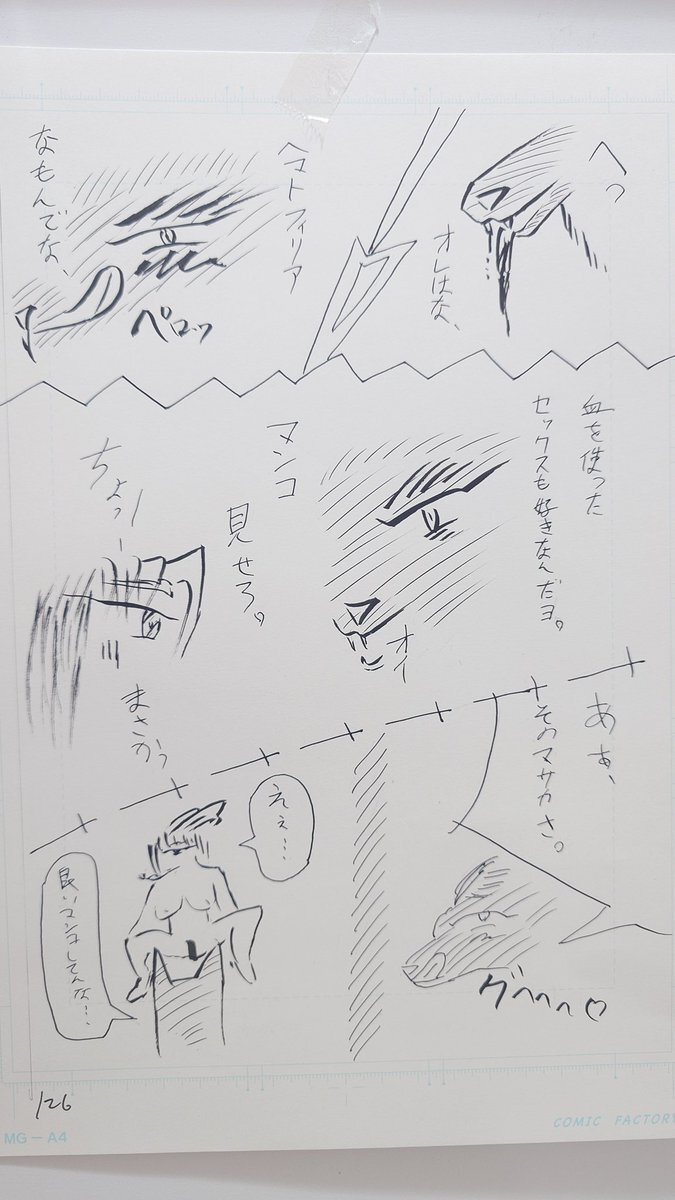 へっ
オレはな、
ヘマトフィリア
なもんでな、
ペロッ
血を使った
セックスも好きなんだヨ。
オイ
マンコ
見せろ。
ちょっ
まさかっ
あぁ、
そのマサカさ。
グヘヘヘ♡
ええ…
良いマンコしてんな…
126
MG-A4
COMIC FACTORY